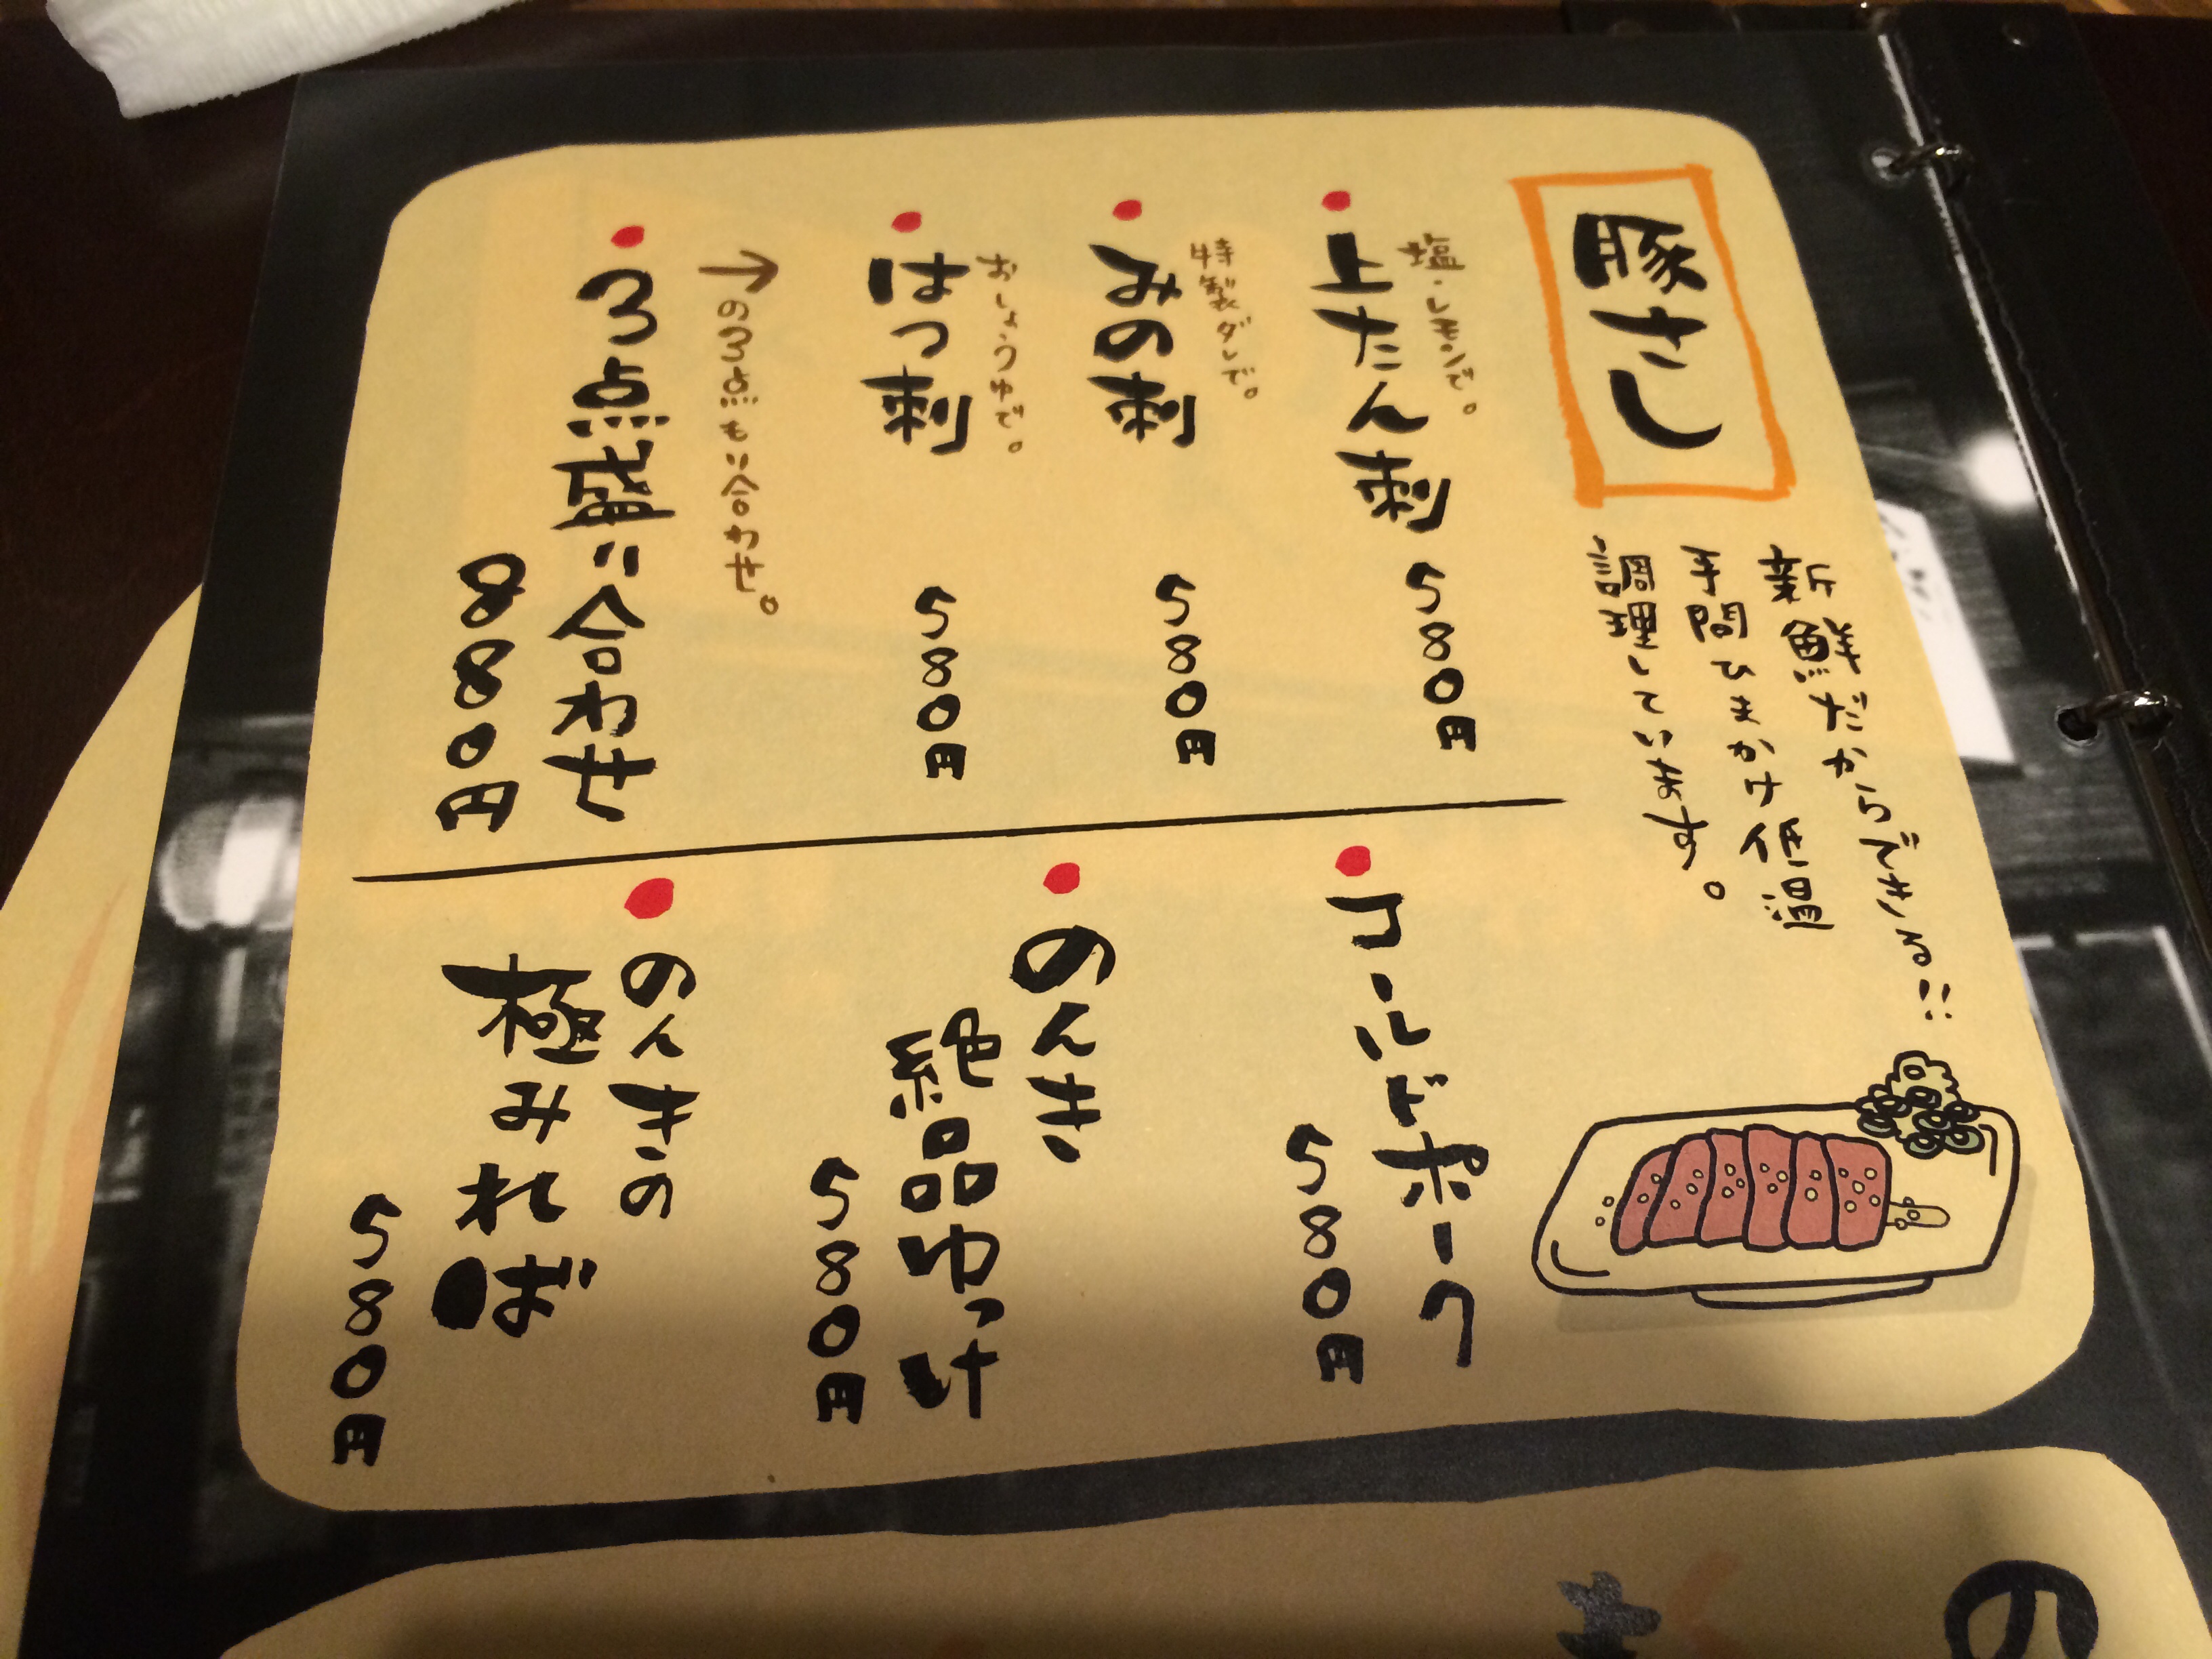 豚さし
新鮮だからできる!!
手間ひまかけ低温
調理しています。
塩・レモンで。
上たん刺
580円
特製ダレで。
みの刺
580円
おしょうゆで。
はつ刺
580円
→の3点もり合わせ。
3点盛り合わせ
880円
ゴールドポーク
580円
のんき
絶品ゆっけ
580円
のんきの
極みればー
580円
の